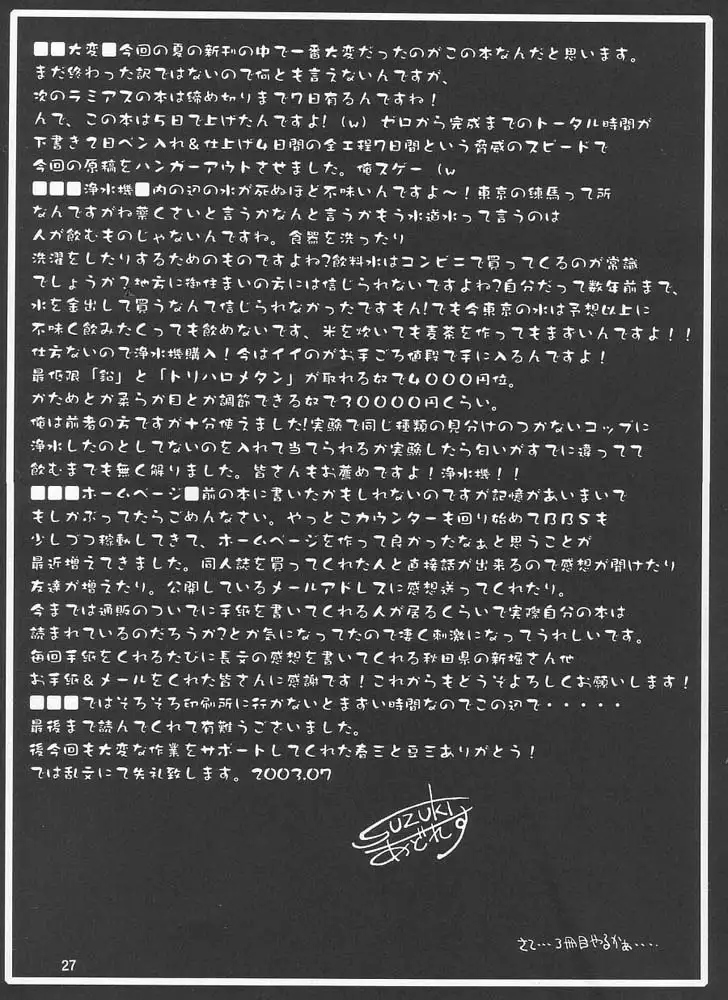 ■■大変■今回の夏の新刊の中で一番大変だったのがこの本なんだと思います。
まだ終わった訳ではないので何とも言えないんですが、
次のラミアスの本は締め切りまで7日有るんですね！
んで、この本は5日で上げたんですよ！(w) ゼロから完成までのトータル時間が
下書き2日ペン入れ＆仕上げ4日間の全工程7日間という脅威のスピードで
今回の原稿をハンガーアウトさせました。俺スゲー (w
■■■浄水機■内の辺の水が死ぬほど不味いんですよ～！東京の練馬って所
なんですがね薬くさいと言うかなんと言うかもう水道水って言うのは
人が飲むものじゃないんですね。食器を洗ったり
洗濯をしたりするためのものですよね？飲料水はコンビニで買ってくるのが常識
でしょうか？地方に御住まいの方には信じられないですよね？自分だって数年前まで、
水を金出して買うなんて信じられなかったですもん！でも今東京の水は予想以上に
不味く飲みたくっても飲めないです、米を炊いても麦茶を作ってもまずいんですよ！！
仕方ないので浄水機購入！今はイイのがお手ごろ値段で手に入るんですよ！
最低限「鉛」と「トリハロメタン」が取れる奴で4000円位。
かためとか柔らか目とか調節できる奴で30000円くらい。
俺は前者の方ですが十分使えました！実験で同じ種類の見分けのつかないコップに
浄水したのとしてないのを入れて当てられるか実験したら匂いがすでに違ってて
飲むまでも無く解りました。皆さんもお薦めですよ！浄水機！！
■■■ホームページ■前の本に書いたかもしれないのですが記憶があいまいで
もしかぶってたらごめんなさい。やっとこカウンターも回り始めてBBSも
少しづつ稼動してきて、ホームページを作って良かったなぁと思うことが
最近増えてきました。同人誌を買ってくれた人と直接話が出来るので感想が聞けたり
友達が増えたり。公開しているメールアドレスに感想送ってくれたり。
今までは通販のついでに手紙を書いてくれる人が居るくらいで実際自分の本は
読まれているのだろうか？とか気になってたので凄く刺激になってうれしいです。
毎回手紙をくれるたびに長文の感想を書いてくれる秋田県の新堀さん他
お手紙＆メールをくれた皆さんに感謝です！これからもどうぞよろしくお願いします！
■■■ではそろそろ印刷所に行かないとまずい時間なのでこの辺で・・・・・
最後まで読んでくれて有難うございました。
後今回も大変な作業をサポートしてくれた春三と豆三ありがとう！
では乱文にて失礼致します。2003.07
SUZUKI
あどれす
さて…3冊目やるかぁ・・・・
27